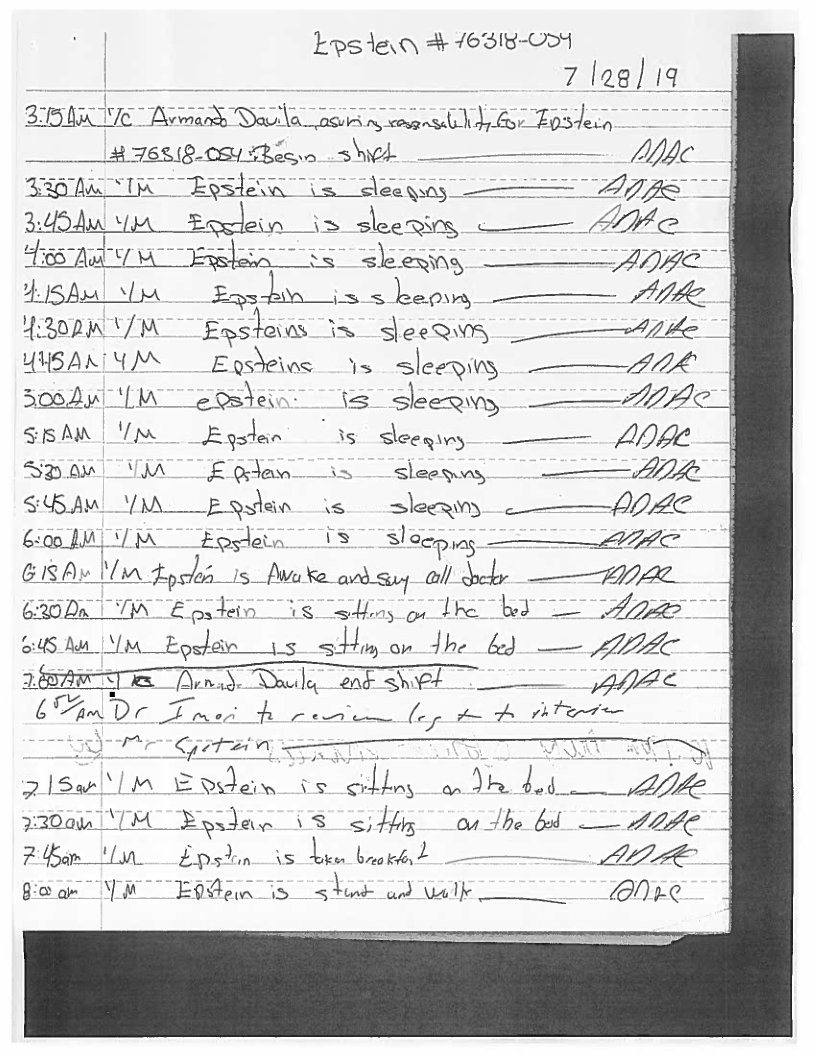 Epstein # 76318-054
7/28/19
3:15 AM I/C Armando Davila, asuring responsability for Epstein
# 76318-054; Begin shift ADAC
3:30 Am I/M Epstein is sleeping ADAC
3:45 AM I/M Epstein is sleeping ADAC
4:00 AM I/M Epstein is sleeping ADAC
4:15 AM I/M Epstein is sleeping ADAC
4:30 AM I/M Epsteins is sleeping ADAC
4:45 AM I/M Epsteins is sleeping ADAC
5:00 AM I/M epstein is sleeping ADAC
5:15 AM I/M Epstein is sleeping ADAC
5:30 AM I/M Epstein is sleeping ADAC
5:45 AM I/M Epstein is sleeping ADAC
6:00 AM I/M Epstein is sleeping ADAC
6:15 AM I/M Epstein is Awake and say call doctor ADAC
6:30 Am I/M Epstein is sitting on the bed ADAC
6:45 AM I/M Epstein is sitting on the bed ADAC
7:00 AM I/C Armando Davila end shift ADAC
6 52 AM Dr Imeri to review log + to interview
Mr Epstein
7 15 am I/M Epstein is sitting on the bed ADAC
7:30 am I/M Epstein is sitting on the bed ADAC
7:45am I/M Epstein is taken breakfast ADAC
8:00 am I/M Epstein is stand and walk ADAC